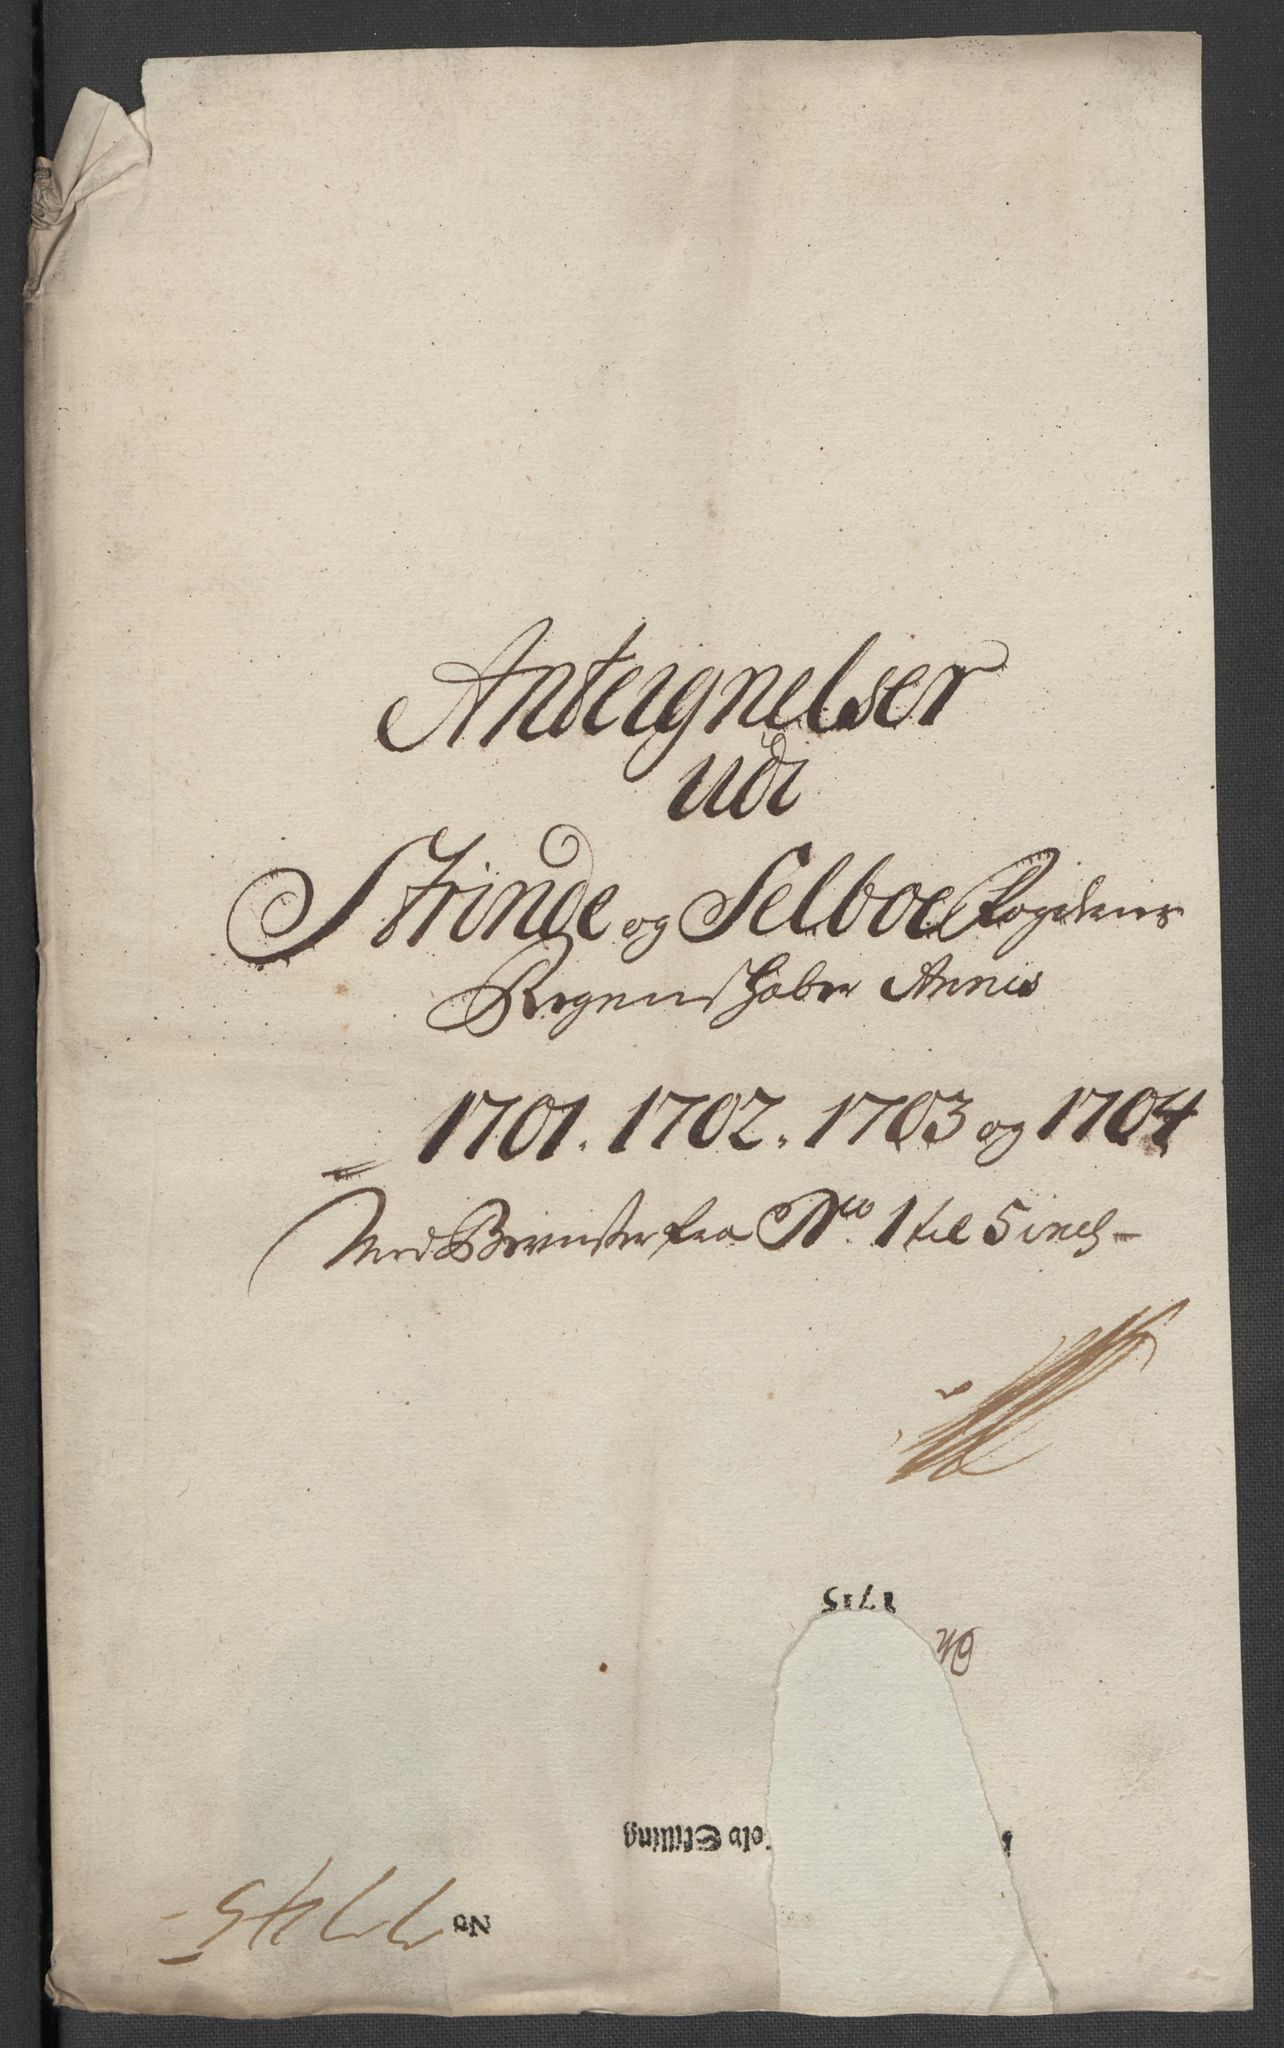 Anteignelser
udi
Strinde og Selboe Fogderies
Regenskaber Annis
1701. 1702. 1703 og 1704
Med Beviister fra No. 1 til 5 incl.
1715
Skilling
No 7745